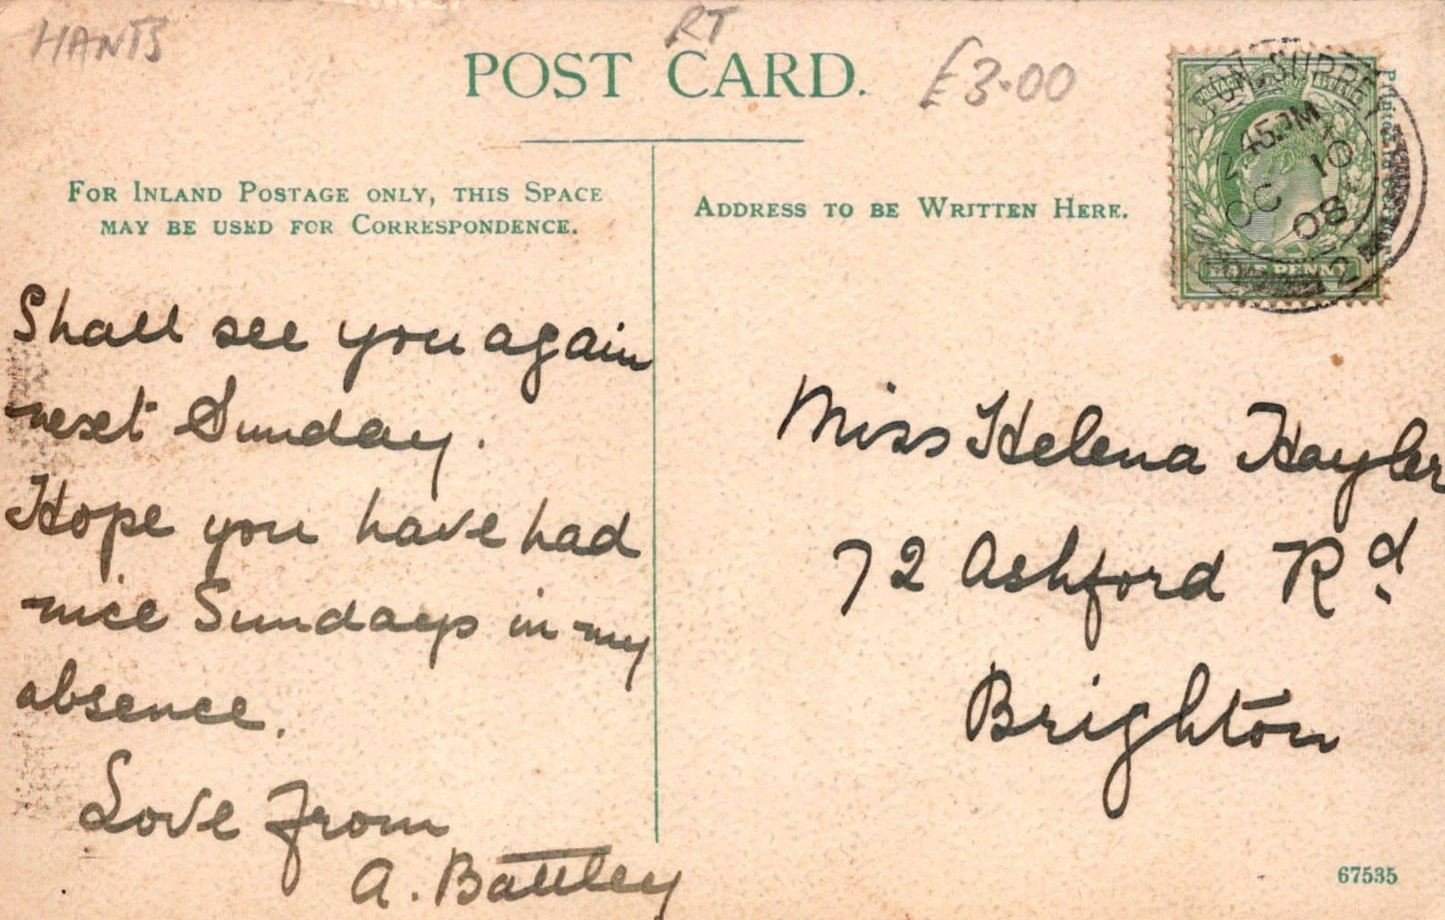 HANTS
RT
£3-00
POST CARD.
FOR INLAND POSTAGE ONLY, THIS SPACE
MAY BE USED FOR CORRESPONDENCE.
ADDRESS TO BE WRITTEN HERE.
SURREY
2 45 PM
OC 10
08
2
HALF PENNY
Shall see you again
next Sunday.
Hope you have had
nice Sundays in my
absence.
Love from
A. Battley
Miss Helena Hayler
72 Ashford Rd.
Brighton
67535